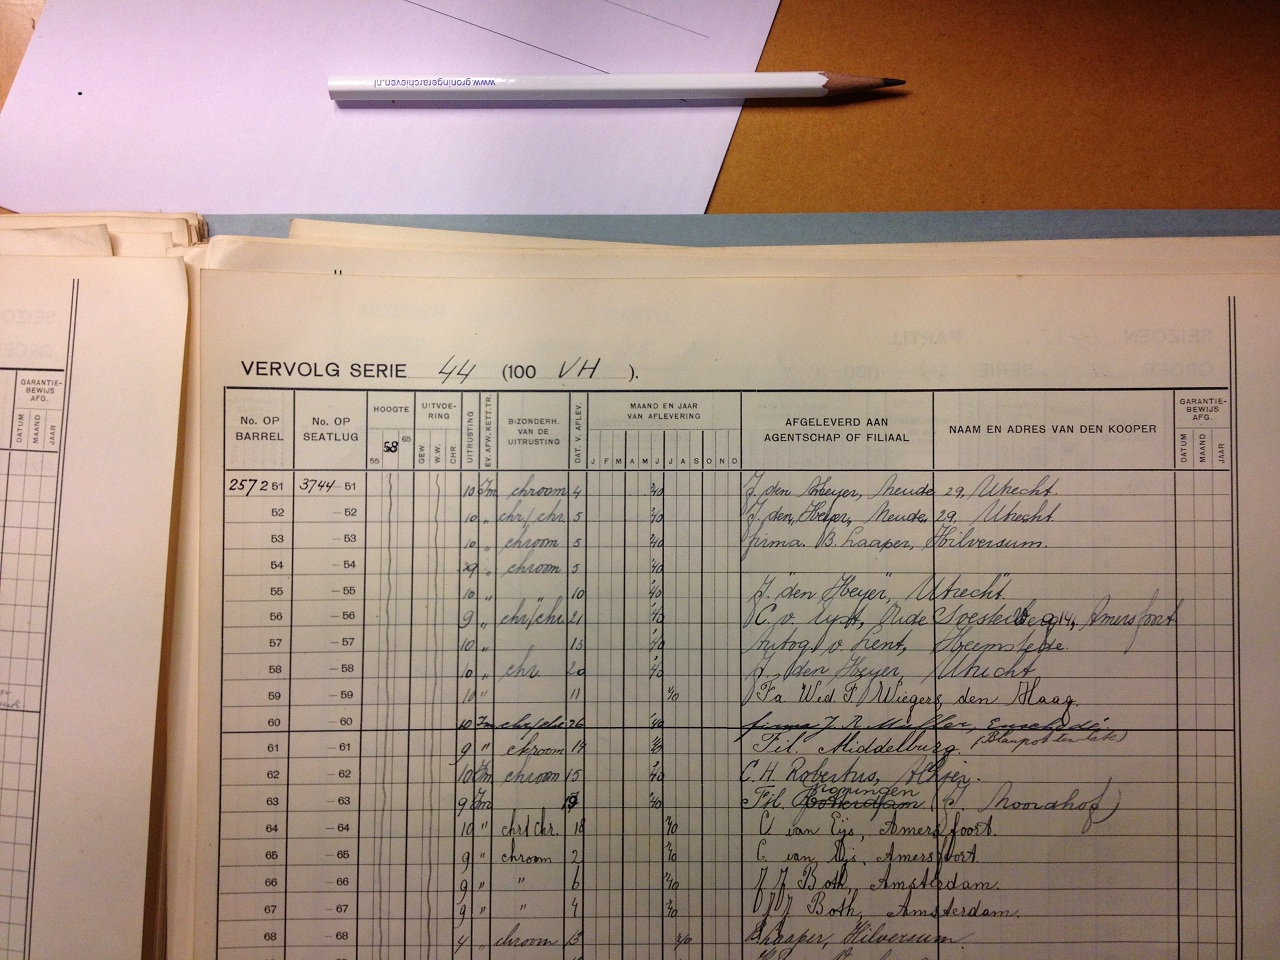 www.groningerarchieven.nl
VERVOLG SERIE 44 (100 VH ).
No. OP BARREL
No. OP SEATLUG
HOOGTE
55 58 65
UITVOE-RING
GEW. W.W. CHR.
UITRUSTING
EV. AFW. KETT. TR.
BIZONDERH. VAN DE UITRUSTING
DAT. V. AFLEV.
MAAND EN JAAR VAN AFLEVERING
J F M A M J J A S O N D
AFGELEVERD AAN AGENTSCHAP OF FILIAAL
NAAM EN ADRES VAN DEN KOOPER
GARANTIE-BEWIJS AFG.
DATUM MAAND JAAR
GARANTIE-BEWIJS AFG.
DATUM MAAND JAAR
257251 3744-51 10 chroom 4 '40 J. den Heyer, Neude 29, Utrecht.
52 -52 10 " chr/chr. 5 '40 J. den Heyer, Neude, 29, Utrecht.
53 -53 10 " chroom 5 '40 firma. B. Laaper, Hilversum.
54 -54 " chroom 5 '40
55 -55 10 " 10 '40 J. den Heyer, Utrecht
56 -56 9 " chr/chr. 21 '40 C. v. Oude Soesterberg 14, Amersfoort
57 -57 10 " 13 '40 v. Lent, Heemstede.
58 -58 10 " chr. 20 '40 J. den Heyer, Utrecht
59 -59 10 " 11 Fa. Wed. F. Wiegers, den Haag.
60 -60 10 chr/chr. 26 '40 firma J. R. Muller, Enschedé.
61 -61 9 " chroom 14 Fil. Middelburg.
62 -62 10 chroom 15 '40 C. H. Robertus,
63 -63 9 '40 Fil. Rotterdam Groningen (J. Noordhof)
64 -64 10 " chr/chr. 18 C. van Eijs, Amersfoort.
65 -65 9 " chroom 2 C. van Eijs, Amersfoort.
66 -66 9 " " 6 J J Both, Amsterdam.
67 -67 9 " " 4 J J Both, Amsterdam.
68 -68 4 " chroom 13 Schaaper, Hilversum.